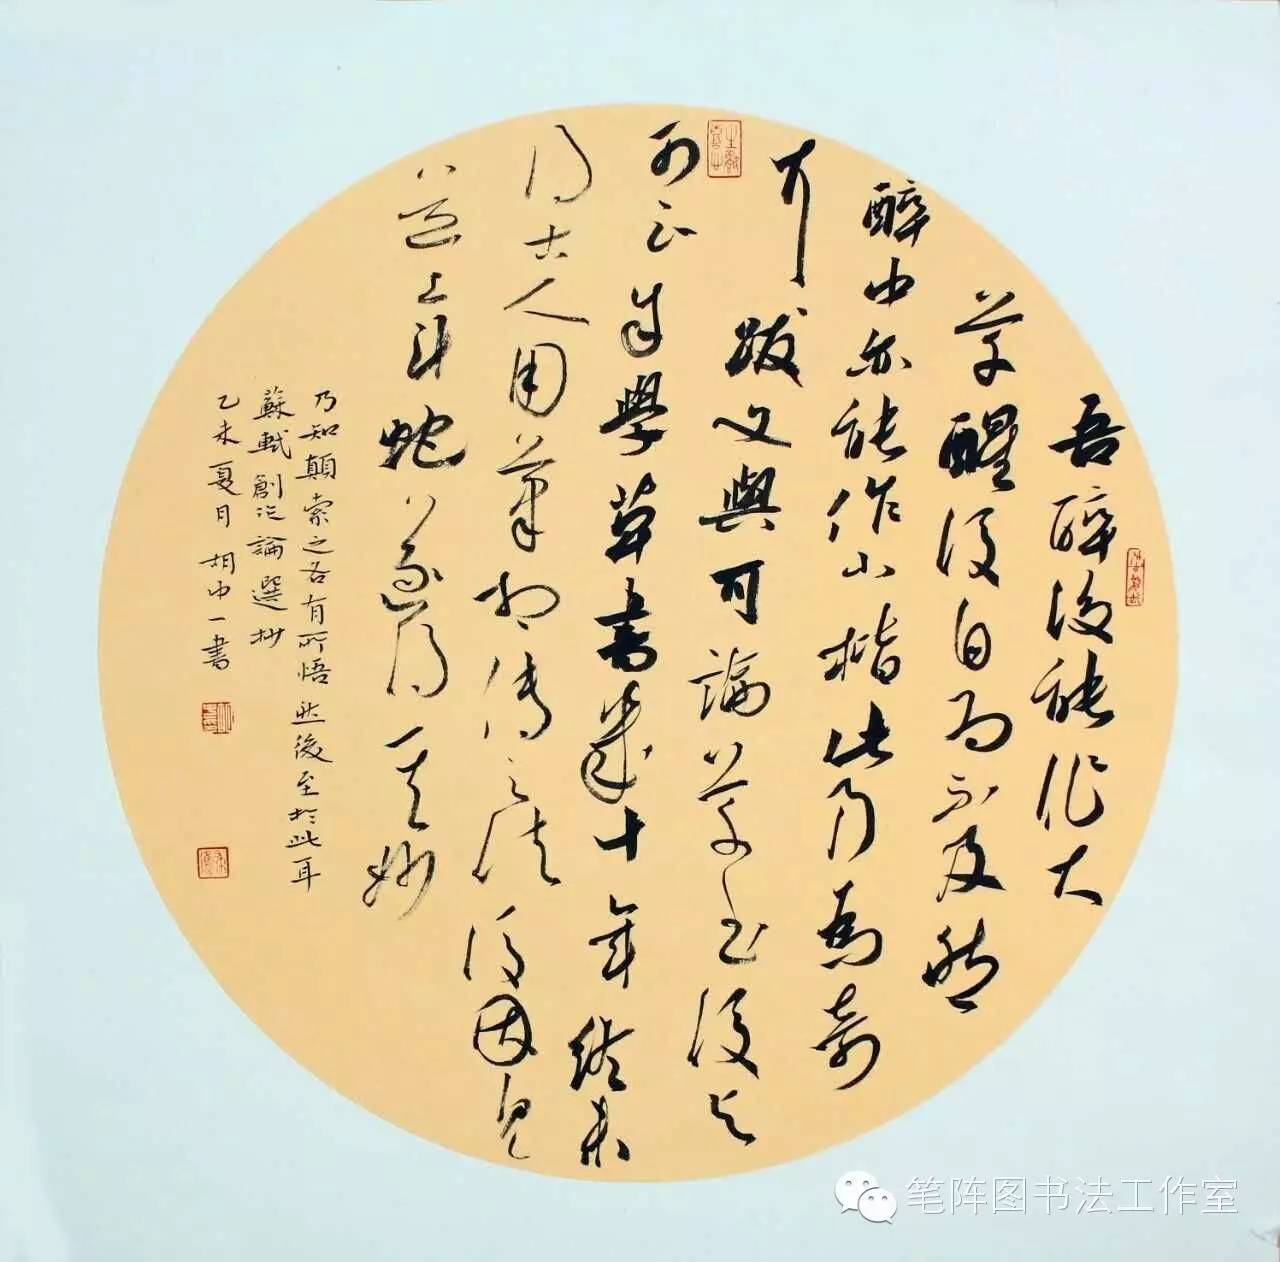 吾醉後能作大
草醒後自為不及然
醉中亦能作小楷此乃為奇
耳跋文與可論草书後与
可云自學草書幾十年終未
得古人用筆相傳之法後因見
道上鬥蛇遂得其妙
乃知顛素之各有所悟然後至於此耳
蘇軾創作論選抄
乙未夏月胡中一書
笔阵图书法工作室